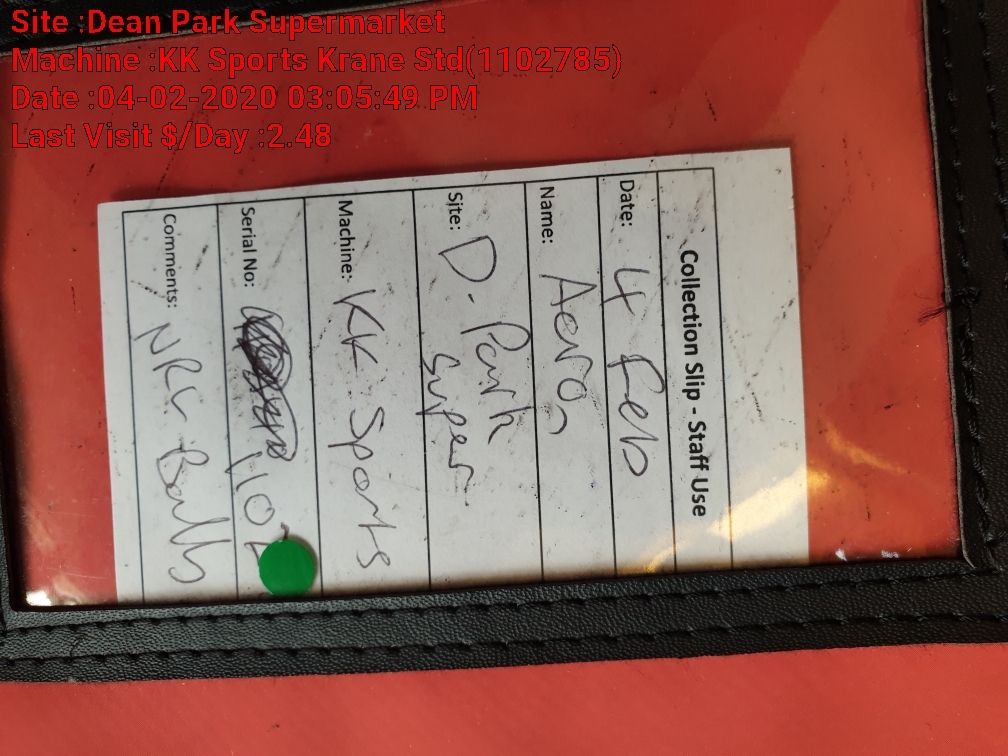 Site :Dean Park Supermarket
Machine :KK Sports Krane Std(1102785)
Date :04-02-2020 03:05:49 PM
Last Visit $/Day :2.48
Collection Slip - Staff Use
Date: 4 Feb
Name:
Site: D. Park
Super
Machine: KK Sports
Serial No: 110
Comments: NRL Balls